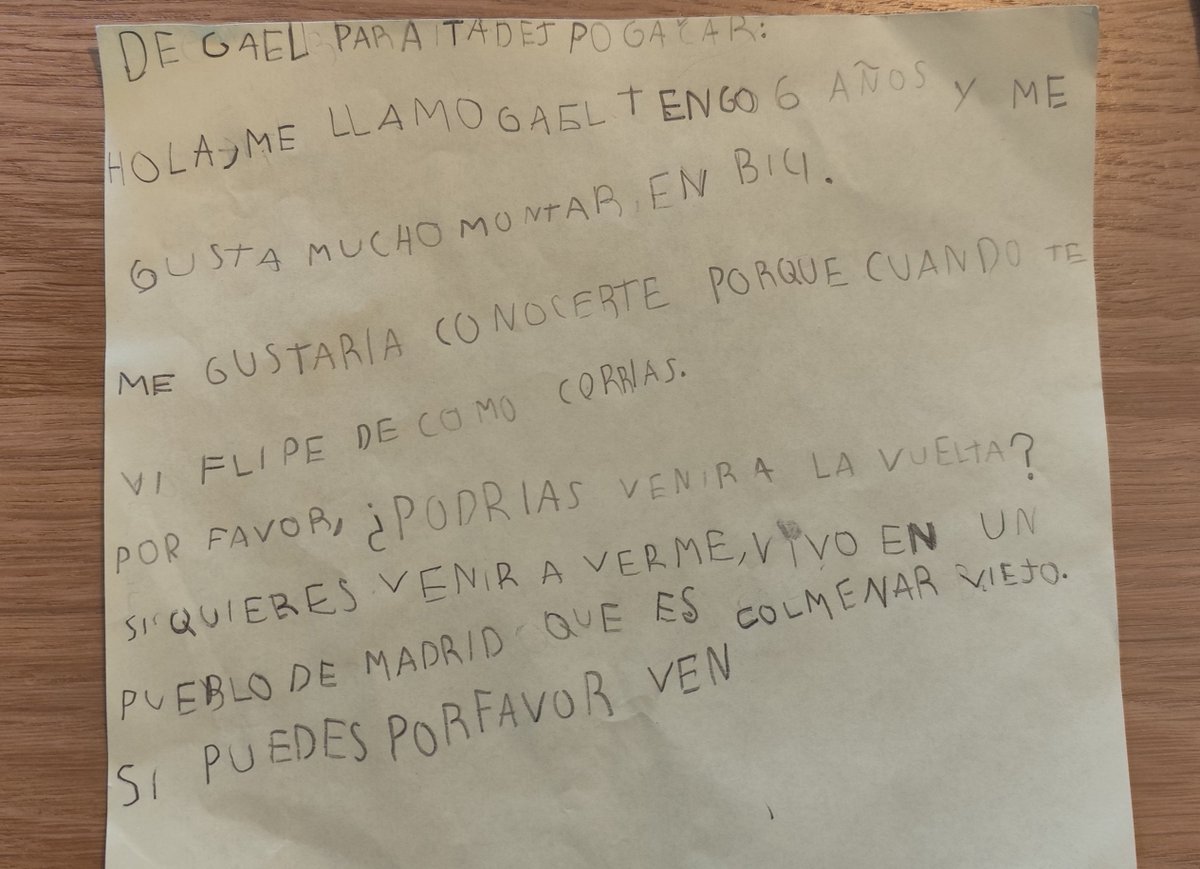 DE GAEL PARA TADEJ POGAČAR:
HOLA, ME LLAMO GAEL TENGO 6 AÑOS Y ME
GUSTA MUCHO MONTAR EN BICI.
ME GUSTARIA CONOCERTE PORQUE CUANDO TE
VI FLIPE DE COMO CORRIAS.
POR FAVOR, ¿PODRIAS VENIR A LA VUELTA?
SI QUIERES VENIR A VERME, VIVO EN UN
PUEBLO DE MADRID QUE ES COLMENAR VIEJO.
SI PUEDES POR FAVOR VEN